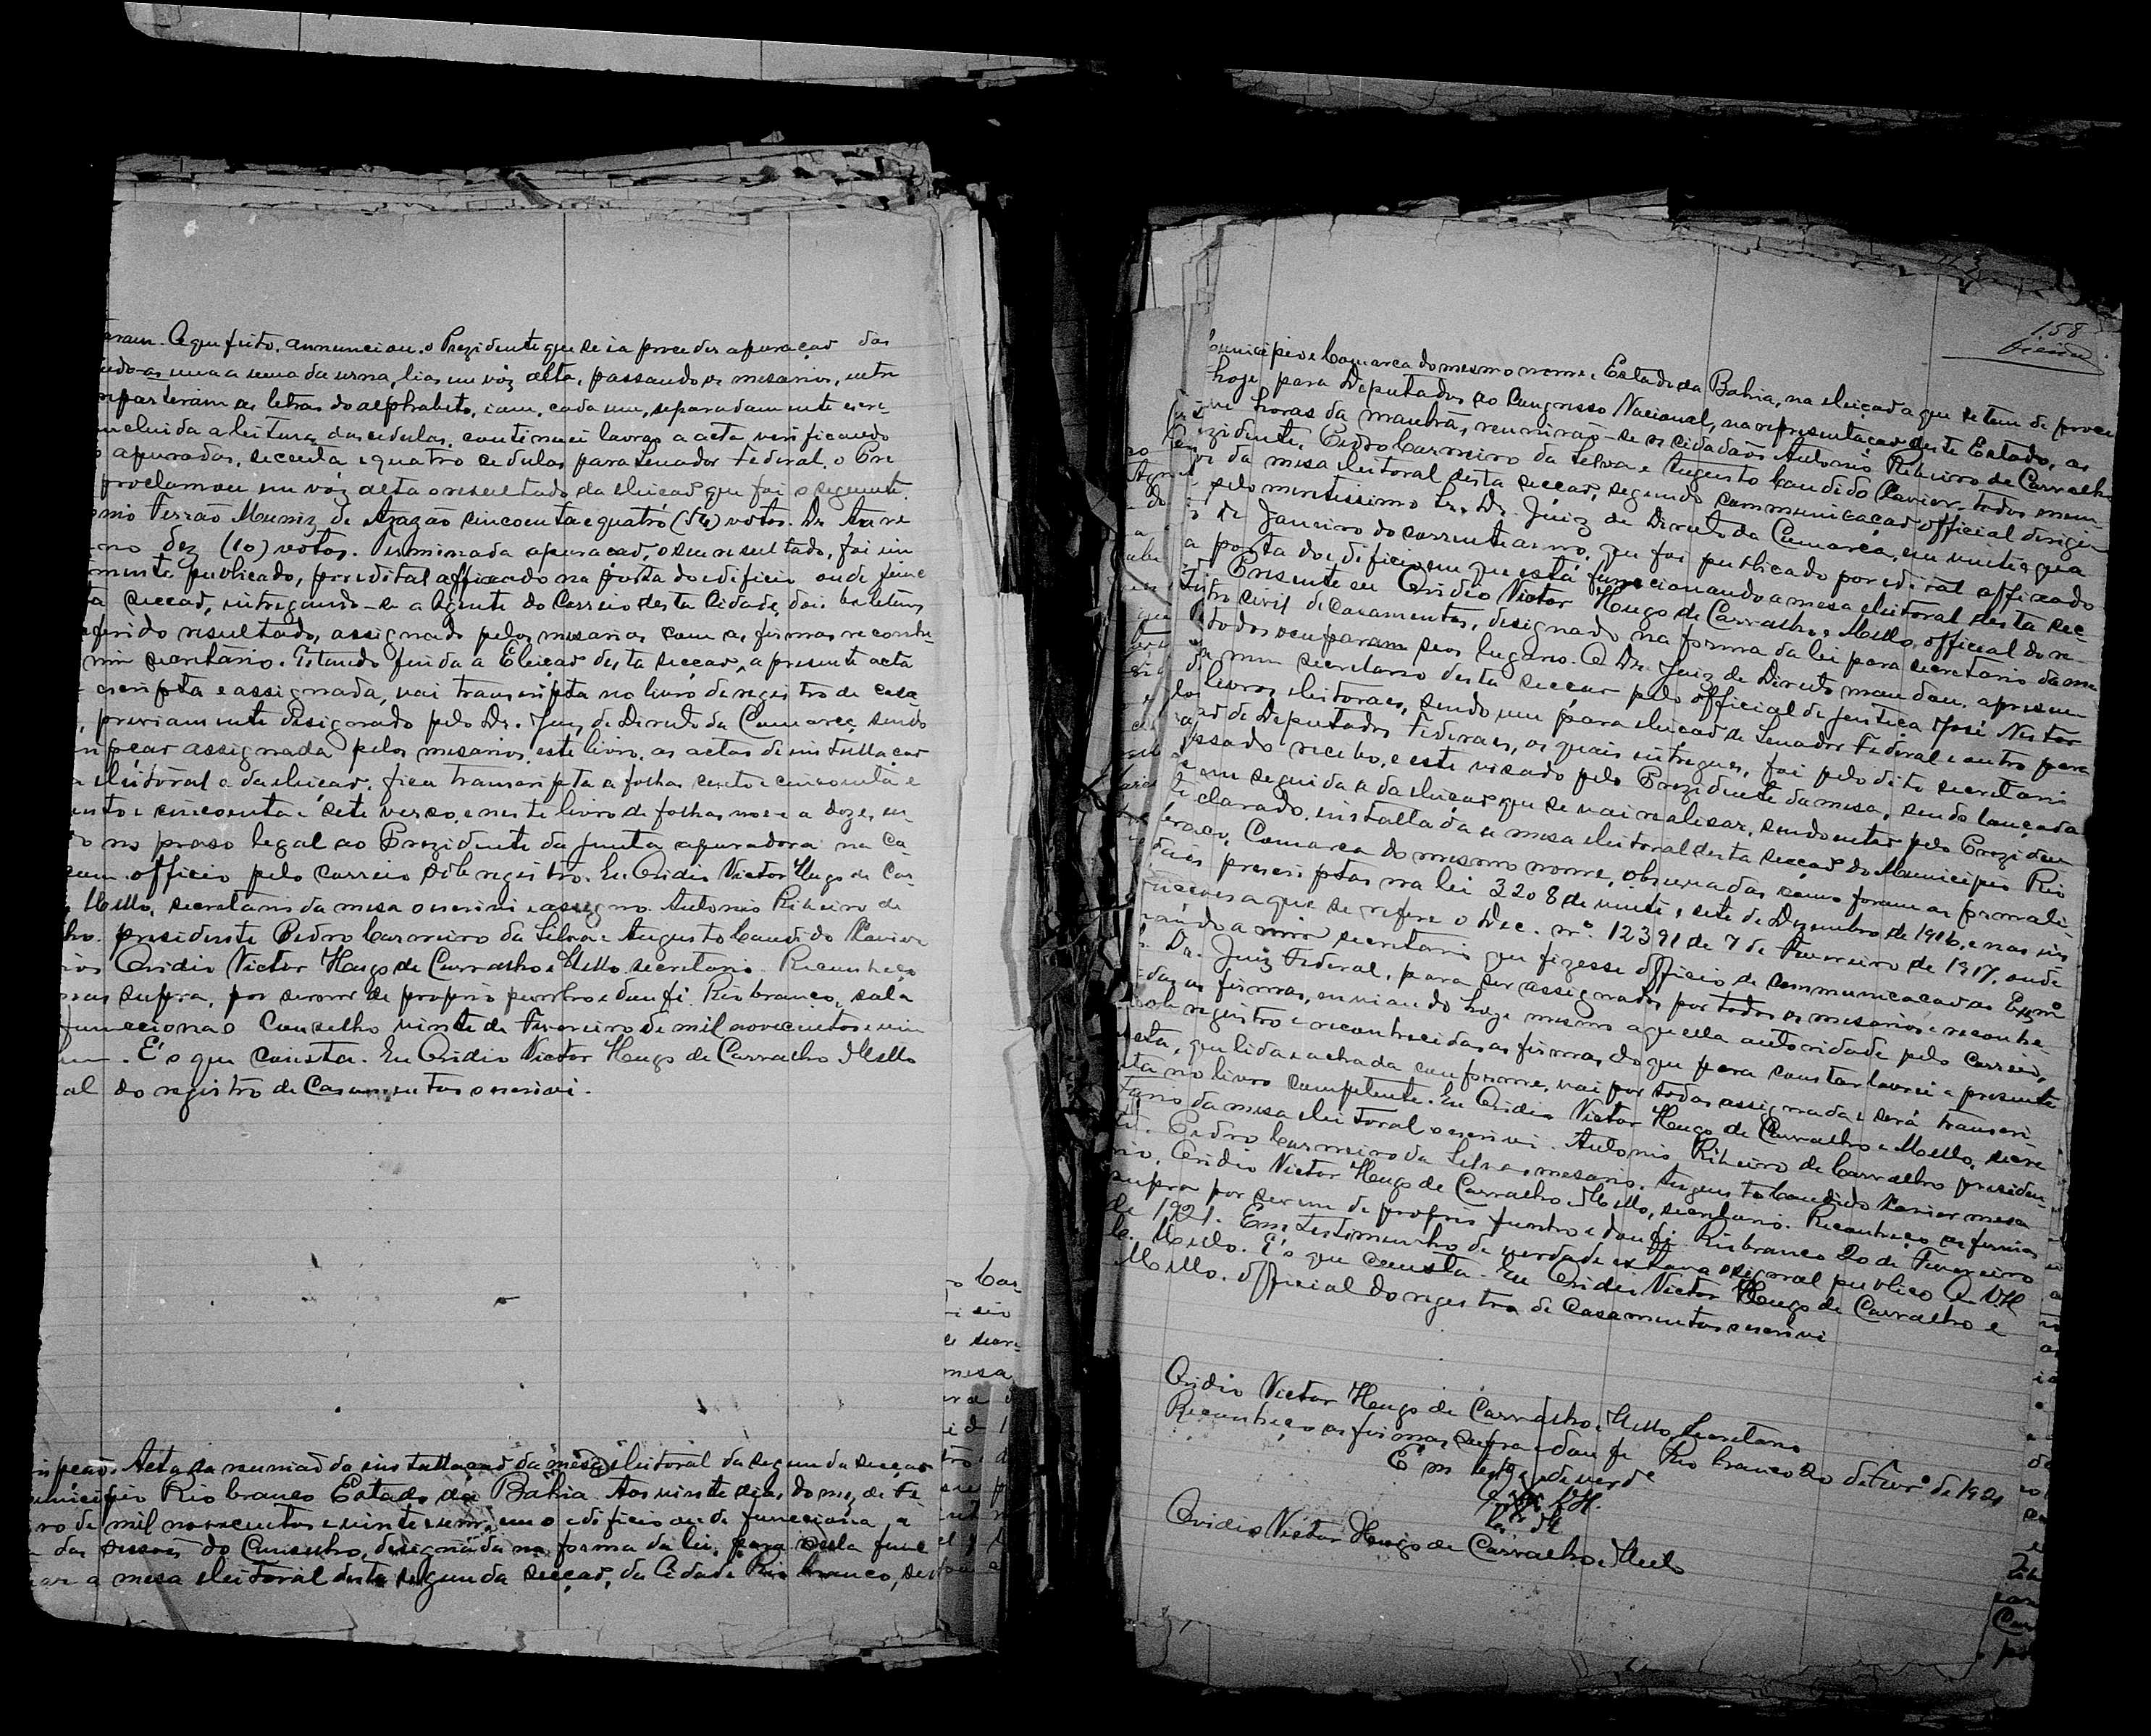 Aque feito, annunciou o Prezidente que se ia proceder apuração das
uma a uma da urna, lias em vóz alta, passando os mesarios, entre
repartiram as letras do alphabeto, iam, cada um, separadamente escre-
ncluida a leitura das cedulas, continuei lavrar a acta, verificando
apuradas, secenta e quatro cedulas para Senador Federal. o Pre
proclamou em vóz alta o resultado da eleição que foi o seguinte
onio Ferrão Muniz de Aragão cincoenta e quatro (54) votos. Dr.
dez (10) votos. Terminada apuração, o seu resultado, foi im
mente publicado, por edital affixado na porta do edificio onde func
a secção, entregando-se a Agente do Correio desta Cidade, dois boletins
eferido resultado, assignado pelos mesarios com as firmas reconhe-
mim secretário. Estando finda a Eleição desta secção, a presente acta
escripta e assignada, vai transcripta no livro de registro de casa-
previamente designado pelo Dr. Juiz de Direito da Comarca, sendo
assignada pelos mesarios, este livro, as actas de installação
eleitoral e da eleição, fica transcripta a folhas cento e cincoenta e
ento e cincoenta e sete verso, e neste livro de folhas nove a doze, en-
no praso legal ao Prezidente da Junta apuradora na Ca-
com officio pelo correio sob registro. Eu Ovidio Victor Hugo de Car-
Mello, secretario da mesa o escrivi e assigno. Antonio Ribeiro de
lho. presidente Pedro Carneiro da Silva e Augusto Candido Xavier
rios Ovidio Victor Hugo de Carvalho e Mello secretario. Reconheço
mas supra, por serem de proprio punho e dou fé. Rio branco, sala
funcciona o Conselho vinte de Fevereiro de mil novecentos e vin
um. É o que consta. Eu Ovidio Victor Hugo de Carvalho e Mello
al do registro de Casamentos o escrivi.
Acta da reunião da installação da mesa eleitoral da segunda secção
unicipio Rio branco Estado da Bahia. Aos vinte dias do mez de Fe-
ro de mil novecentos e vinte e um, em o edificio onde funcciona a
das sessões do Conselho, designada na forma da lei, para nella func
ar a mesa eleitoral desta segunda secção, da Cidade Rio branco,
158
Municipio e Comarca do mesmo nome, Estado da Bahia, na eleição a que se tem de proce
hoje, para Deputados ao Congresso Nacional, na representação deste Estado, as
horas da manhã, reunirão-se os cidadãos Antonio Ribeiro de Carvalho
ezidente, Pedro Carneiro da Silva e Augusto Candido Xavier, todos mem-
da mesa eleitoral desta secção, segundo communicação official dirigi
pelo meritissimo Sr. Dr. Juiz de Direito da Comarca, em vinte e
de Janeiro do corrente anno, que foi publicado por edital affixado
a porta do edificio em que está funccionando a mesa eleitoral desta sec-
Presente eu Ovidio Victor Hugo de Carvalho e Mello, official do re-
gistro civil de casamentos, designado na forma da lei para secretario da me
todos occuparam seus lugares. O Dr. Juiz de Direito mandou apresen-
a mim secretario desta secção pelo official de justiça José Nestor
livros eleitoraes, sendo um para eleição de Senador Federal e outro para
de Deputados Federaes, os quais entregues, foi pelo dito secretario
passado recibo, e este visado pelo Prezidente da mesa, sendo lançada
em seguida a da eleição que se vai realisar, sendo então pelo Preziden
declarado installada a mesa eleitoral desta secção do Municipio Rio
branco, Comarca do mesmo nome, observadas como foram as formali-
dades prescriptas na lei 3208 de vinte e sete de Dezembro de 1916, e nas ins
trucções a que se refere o Dec. nº 12391 de 7 de Fevereiro de 1917,
a mim secretario que fizesse officio de communicação ao Exmº
Dr. Juiz Federal, para ser assignado por todos os mesarios e reconhe-
as firmas, enviando hoje mesmo aquella autoridade pelo correio,
sob registro e reconhecidas as firmas, do que para constar lavrei a presente
acta, que lida e achada conforme, vai por todos assignada e será transcri-
no livro competente. Eu Ovidio Victor Hugo de Carvalho e Mello, secre
tario da mesa eleitoral o escrivi. Antonio Ribeiro de Carvalho presiden-
te. Pedro Carneiro da Silva, mesario. Augusto Candido Xavier mesa
rio. Ovidio Victor Hugo de Carvalho e Mello, secretario. Reconheço as firmas
supra por serem de proprio punho e dou fé. Rio branco 20 de Fevereiro
de 1921. Em testemunho de verdade estava o signal publico O. V. H.
Mello. É o que consta. Eu Ovidio Victor Hugo de Carvalho e
Mello. official do registro de Casamentos o escrivi
Ovidio Victor Hugo de Carvalho e Mello, Secretario
Reconheço as firmas supra e dou fé Rio branco 20 de Fevrº de 1921
Em testº de verdº
Ovidio Victor Hugo de Carvalho e Mello